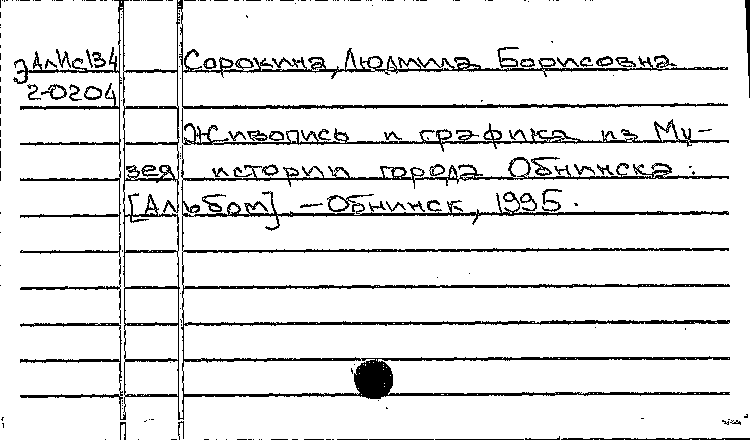 Э АлИс134 Сорокина, Людмила Борисовна
2-0204
Живопись и графика из Му-
зея истории города Обнинска:
[Альбом]. - Обнинск, 1995.